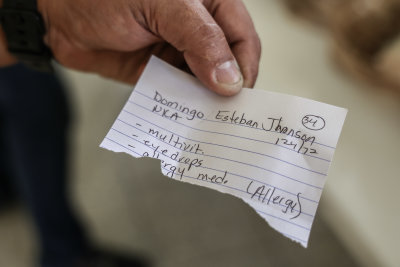 Domingo Esteban Jhonson 34
NKA 124/72
- multivit.
- eyedrops
- allergy med. (Allergy)